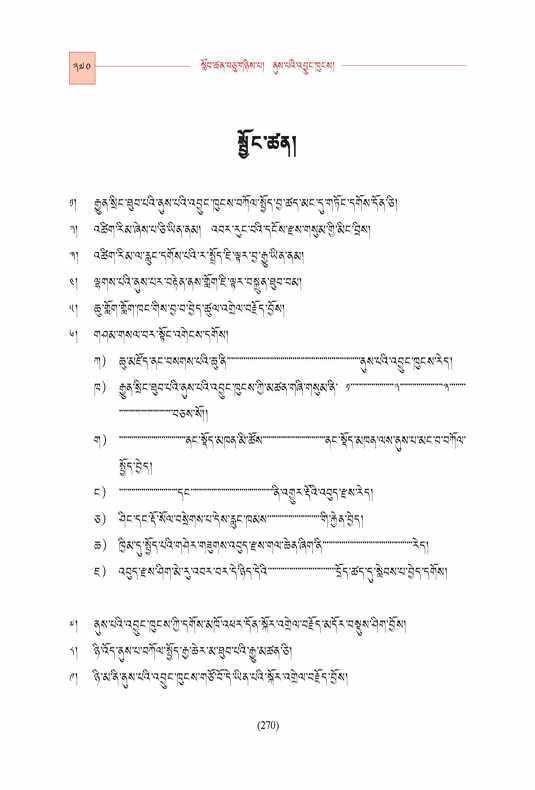 ༢༧༠ སློབ་ཚན་བཅུ་གཉིས་པ། ནུས་པའི་འབྱུང་ཁུངས།
སྦྱོང་ཚན།
༡། རྒྱུན་སྲིང་ཐུབ་པའི་ནུས་པའི་འབྱུང་ཁུངས་བཀོལ་སྤྱོད་བྱ་ཚད་མང་དུ་གཏོང་དགོས་དོན་ཅི།
༢། འཚིག་རིམ་ཞེས་པ་ཅི་ཡིན་ནམ། འབར་རུང་བའི་དངོས་རྫས་གསུམ་གྱི་མིང་བྲིས།
༣། འཚིག་རིམ་ལ་རླུང་དགོས་པའི་ར་སྤྲོད་ཇི་ལྟར་བྱ་རྒྱུ་ཡིན་ནམ།
༤། ལྷགས་པའི་ནུས་པར་བརྟེན་ནས་གློག་ཇི་ལྟར་བསྐྲུན་ཐུབ་བམ།
༥། ཆུ་གློག་གློག་ཁང་གིས་བྱ་བ་བྱེད་ཚུལ་འགྲེལ་བརྗོད་བྱོས།
༦། གཤམ་གསལ་བར་སྟོང་འགེངས་དགོས།
ཀ) ཆུ་མཛོད་ནང་བསགས་པའི་ཆུ་ནི་.................................ནུས་པའི་འབྱུང་ཁུངས་རེད།
ཁ) རྒྱུན་སྲིང་ཐུབ་པའི་ནུས་པའི་འབྱུང་ཁུངས་ཀྱི་མཚན་གཞི་གསུམ་ནི་ ༡..............༢..............༣......
..................བཅས་སོ།།
ག) ......................ནང་སྡོད་མཁན་མི་ཚོས......................ནང་སྡོད་མཁན་ལས་ནུས་པ་མང་བ་བཀོལ་
སྤྱོད་བྱེད།
ང) ....................དང............................ནི་འགྱུར་རྡོའི་འབུད་རྫས་རེད།
ཅ) ཤིང་དང་རྡོ་སོལ་བསྲེགས་པ་དེས་རླུང་ཁམས..................གི་རྐྱེན་བྱེད།
ཆ) ཁྱིམ་དུ་སྤྱོད་པའི་གཤེར་གཟུགས་འབུད་རྫས་གལ་ཆེན་ཞིག་ནི..............................རེད།
ཇ) འབུད་རྫས་ཤིག་མེ་རུ་འབར་བར་དེ་ཉིད་དེའི........................དྲོད་ཚད་དུ་སླེབས་པ་བྱེད་དགོས།
༧། ནུས་པའི་འབྱུང་ཁུངས་ཀྱི་དགོས་མཁོ་འཕར་དོན་སྐོར་འགྲེལ་བརྗོད་མདོར་བསྡུས་ཤིག་བྱོས།
༨། ཉི་འོད་ནུས་པ་བཀོལ་སྤྱོད་རྒྱ་ཆེར་མ་ཐུབ་པའི་རྒྱུ་མཚན་ཅི།
༩། ཉི་མ་ནི་ནུས་པའི་འབྱུང་ཁུངས་གཙོ་བོ་དེ་ཡིན་པའི་སྐོར་འགྲེལ་བརྗོད་བྱོས།
(270)